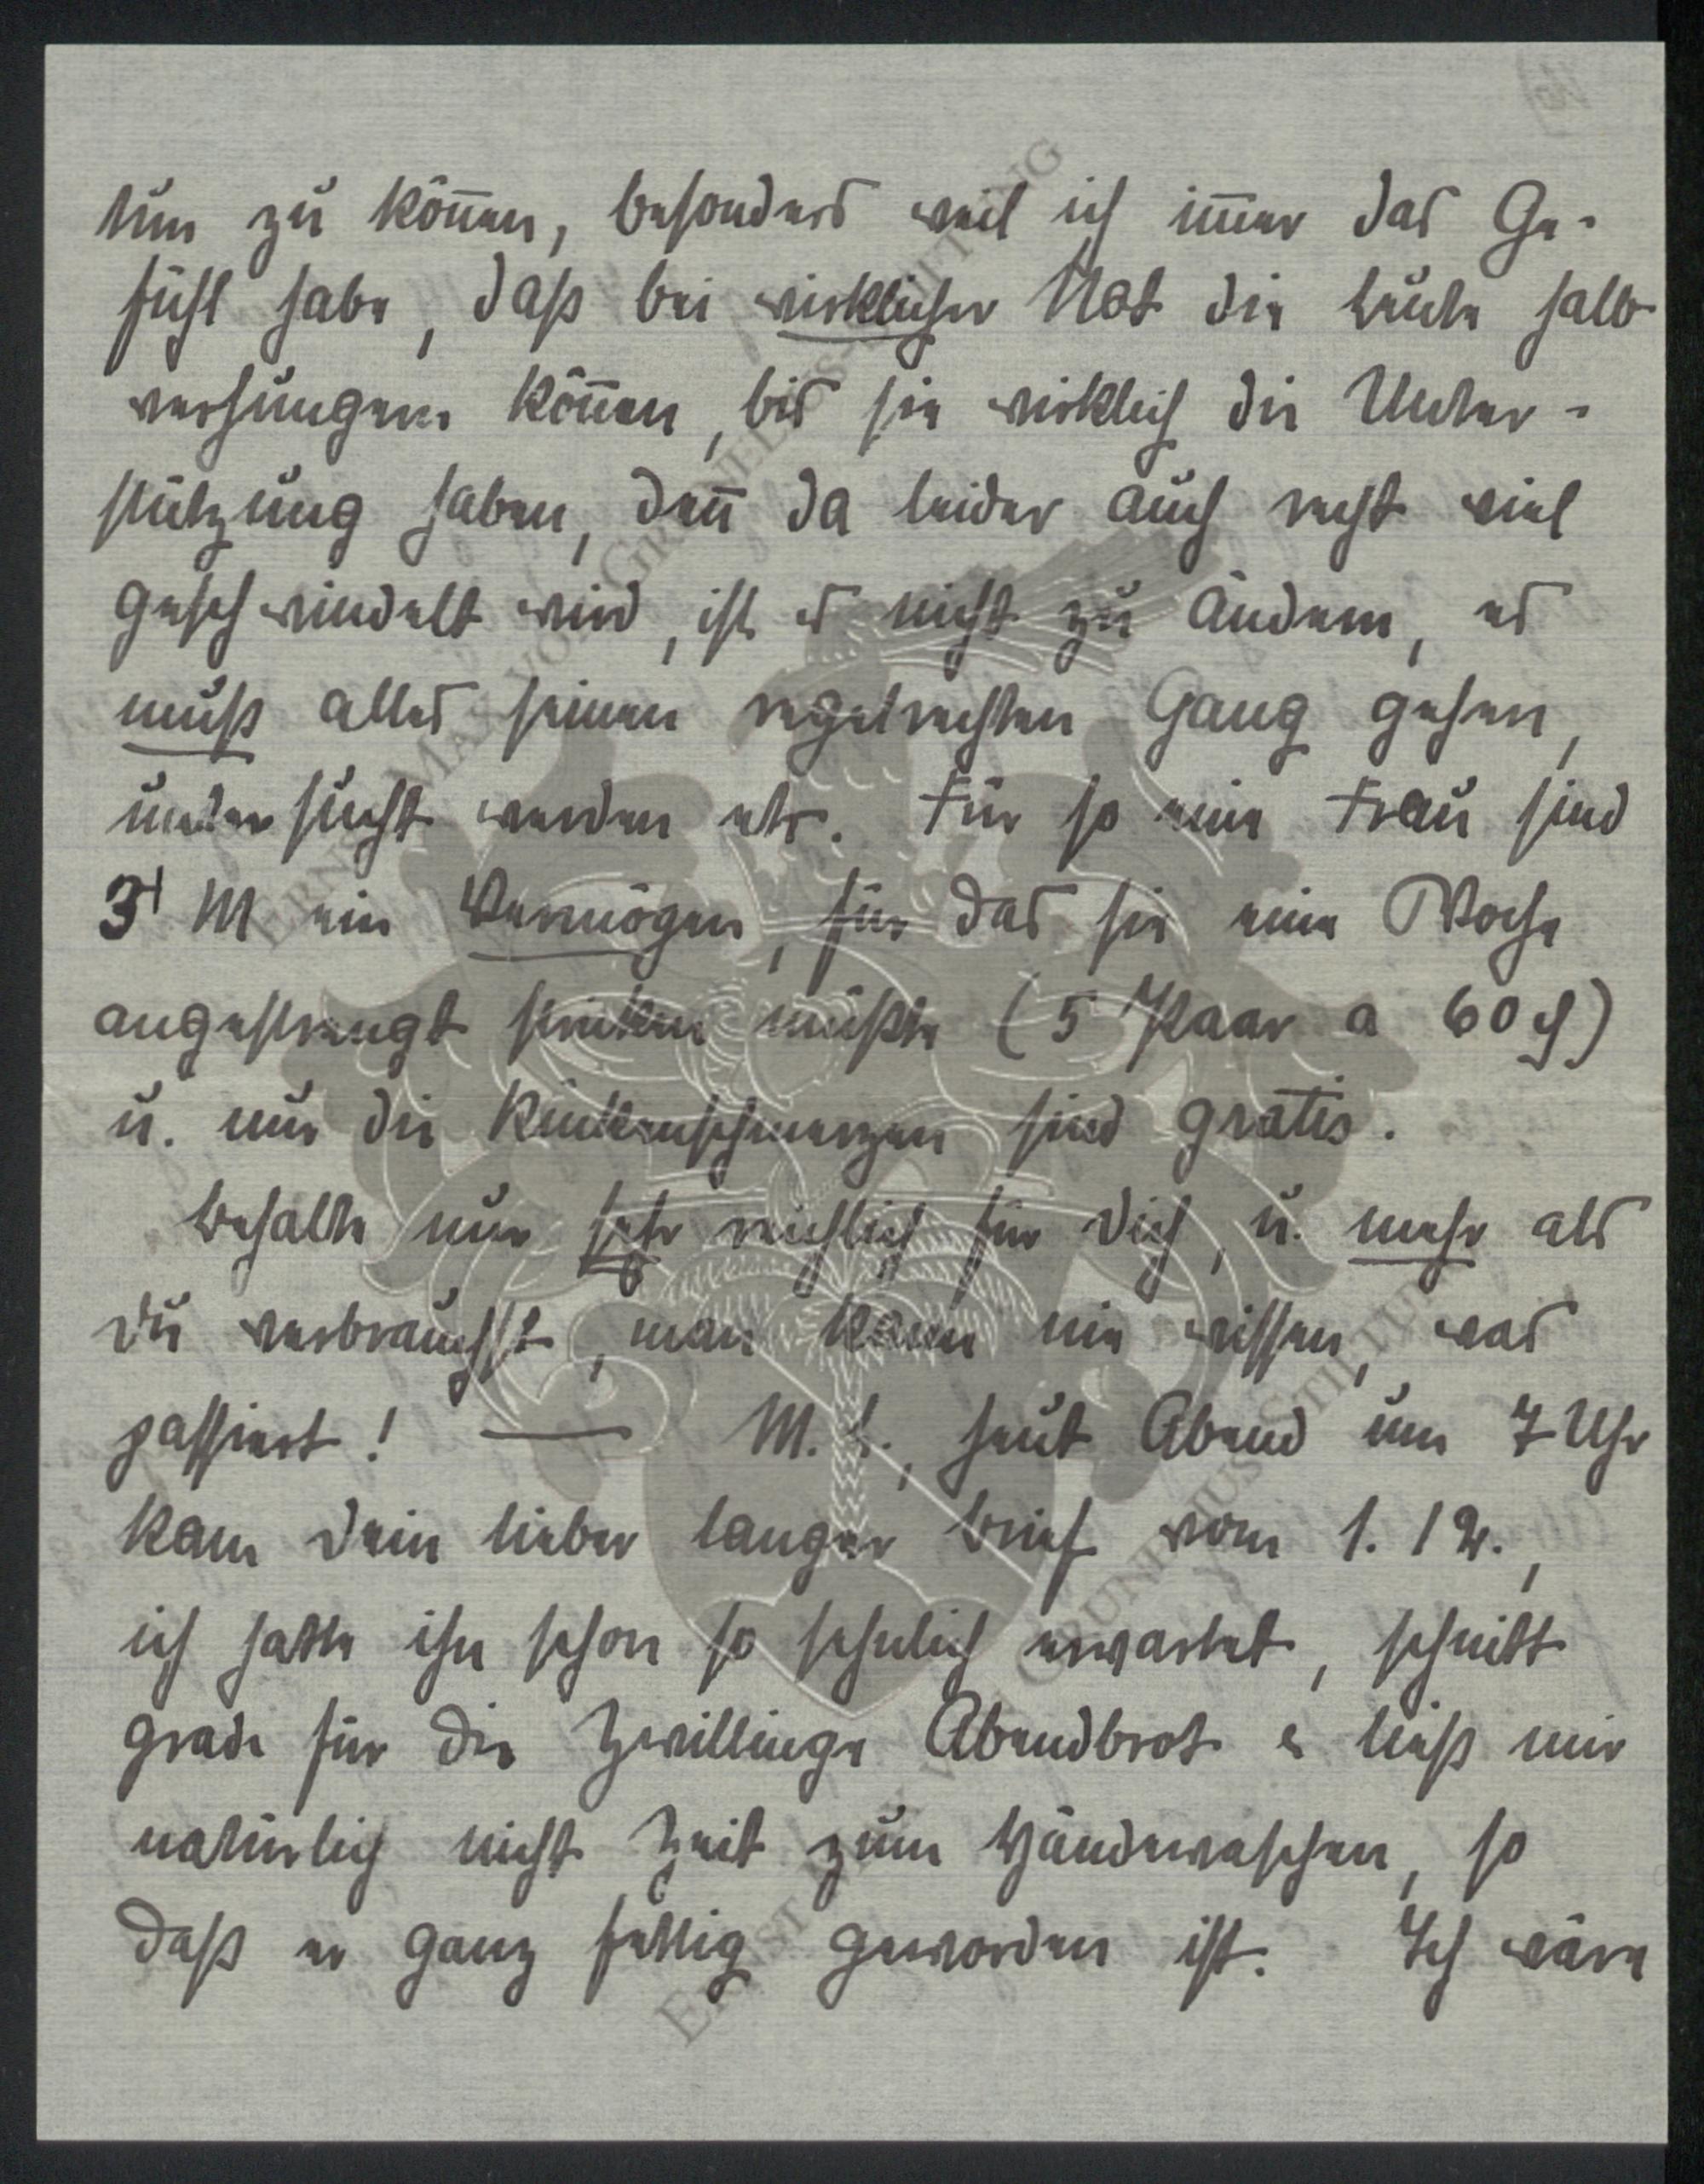 tun zu kön̄en, besonders weil ich im̄er das Ge-
fühl habe, daß bei wirklicher Not die Leute halb
verhungern kön̄en, bis sie wirklich die Unter-
stützung haben, den̄ da leider auch recht viel
geschwindelt wird, ist es nicht zu ändern, es
muß alles seinen regelrechten Gang gehen,
untersucht werden etc. Für so eine Frau sind
3 M ein Vermögen, für das sie eine Woche
angestrengt stricken müßte (5 Paar a 60 ₰)
u. nur die Rückenschmerzen sind gratis.
Behalte nur sehr reichlich für Dich, u. mehr als
Du verbrauchst, man kann nie wissen, was
passiert! — M. L., heut Abend um 7 Uhr
kam Dein lieber langer Brief vom 1. 12.,
ich hatte ihn schon so sehnlich erwartet, schnitt
grade für die Zwillinge Abendbrot & ließ mir
natürlich nicht Zeit zum Händewaschen, so
daß er ganz fettig geworden ist. Ich wäre